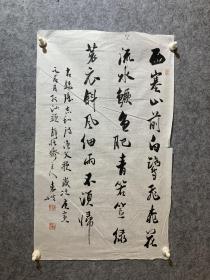 西塞山前白鷺飛桃花
流水鱖魚肥青箬笠綠
蓑衣斜風細雨不須歸
右錄張志和漁父歌歲次庚寅